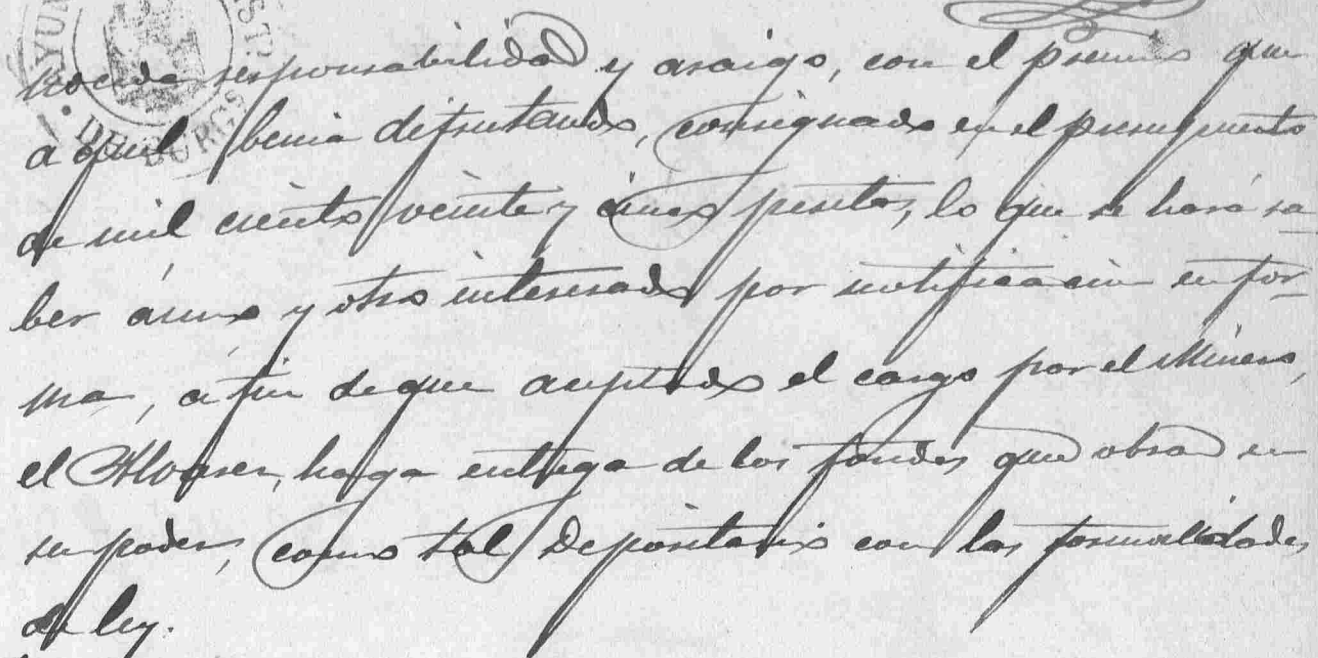 AYUN
DE BURGO
nocida responsabilidad y araigo, con el premio que
aquel benia disfrutando, consignado en el presupuesto
de mil ciento veinte y cinco pesetas, lo que se hará sa-
ber á uno y otro interesado por notificacion en for-
ma, a fin de que aceptado el cargo por el Minero,
el Alvarez, haga entrega de los fondos que obra en
su poder, como tal Depositario con las formalidades
de ley.